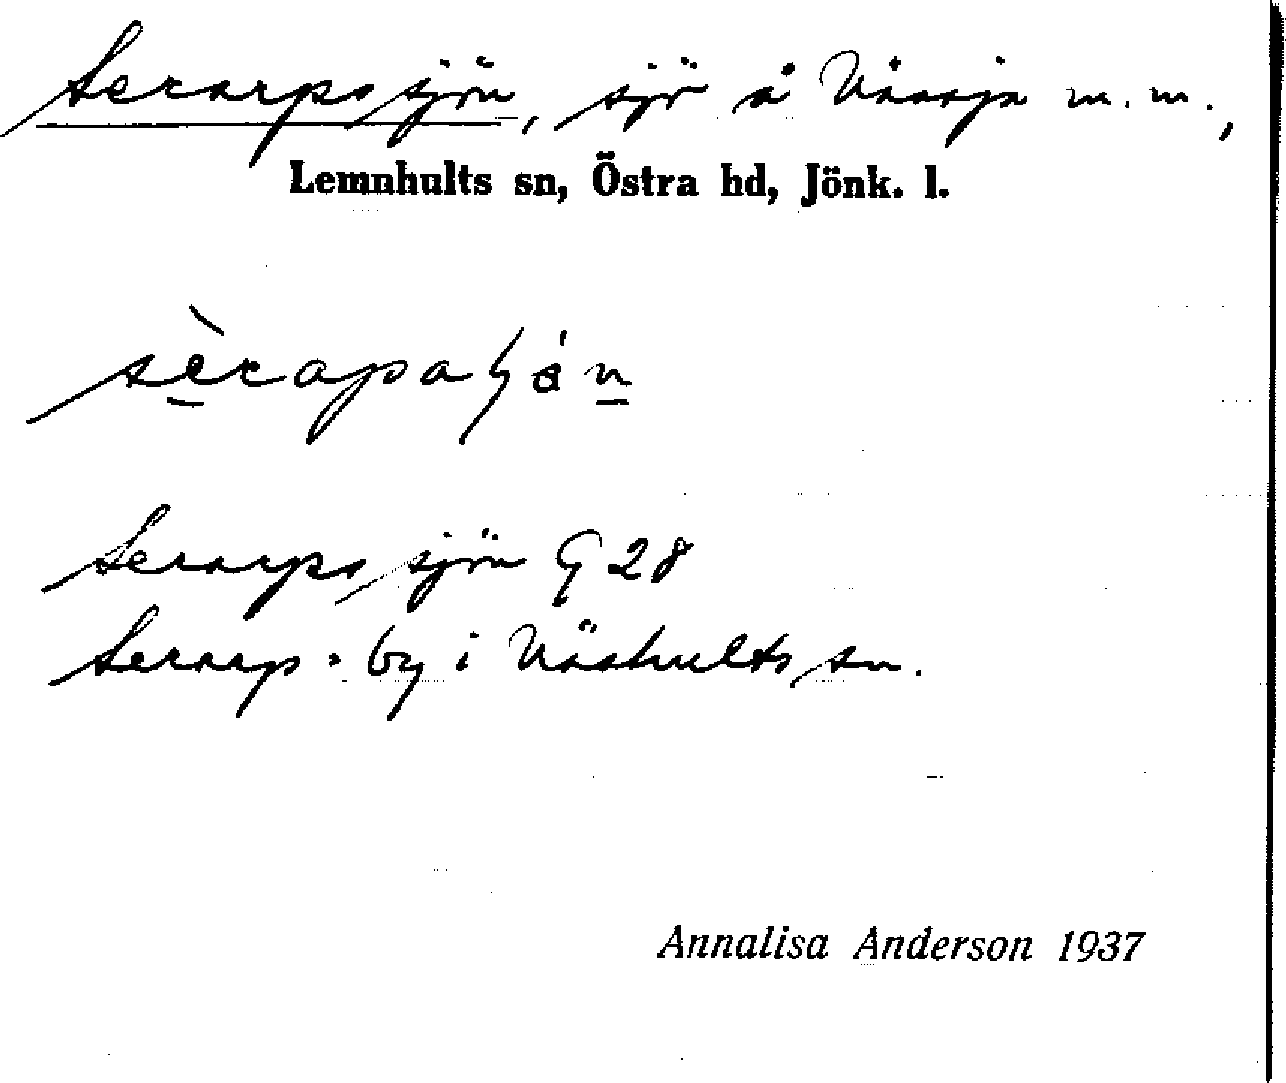 Serarpssjön, sjö å Våraja m.m.,
Lemnhults sn, Östra hd, Jönk. l.
Serarpssjön G 28
Serarp - by i Näshults sn.
Annalisa Anderson 1937